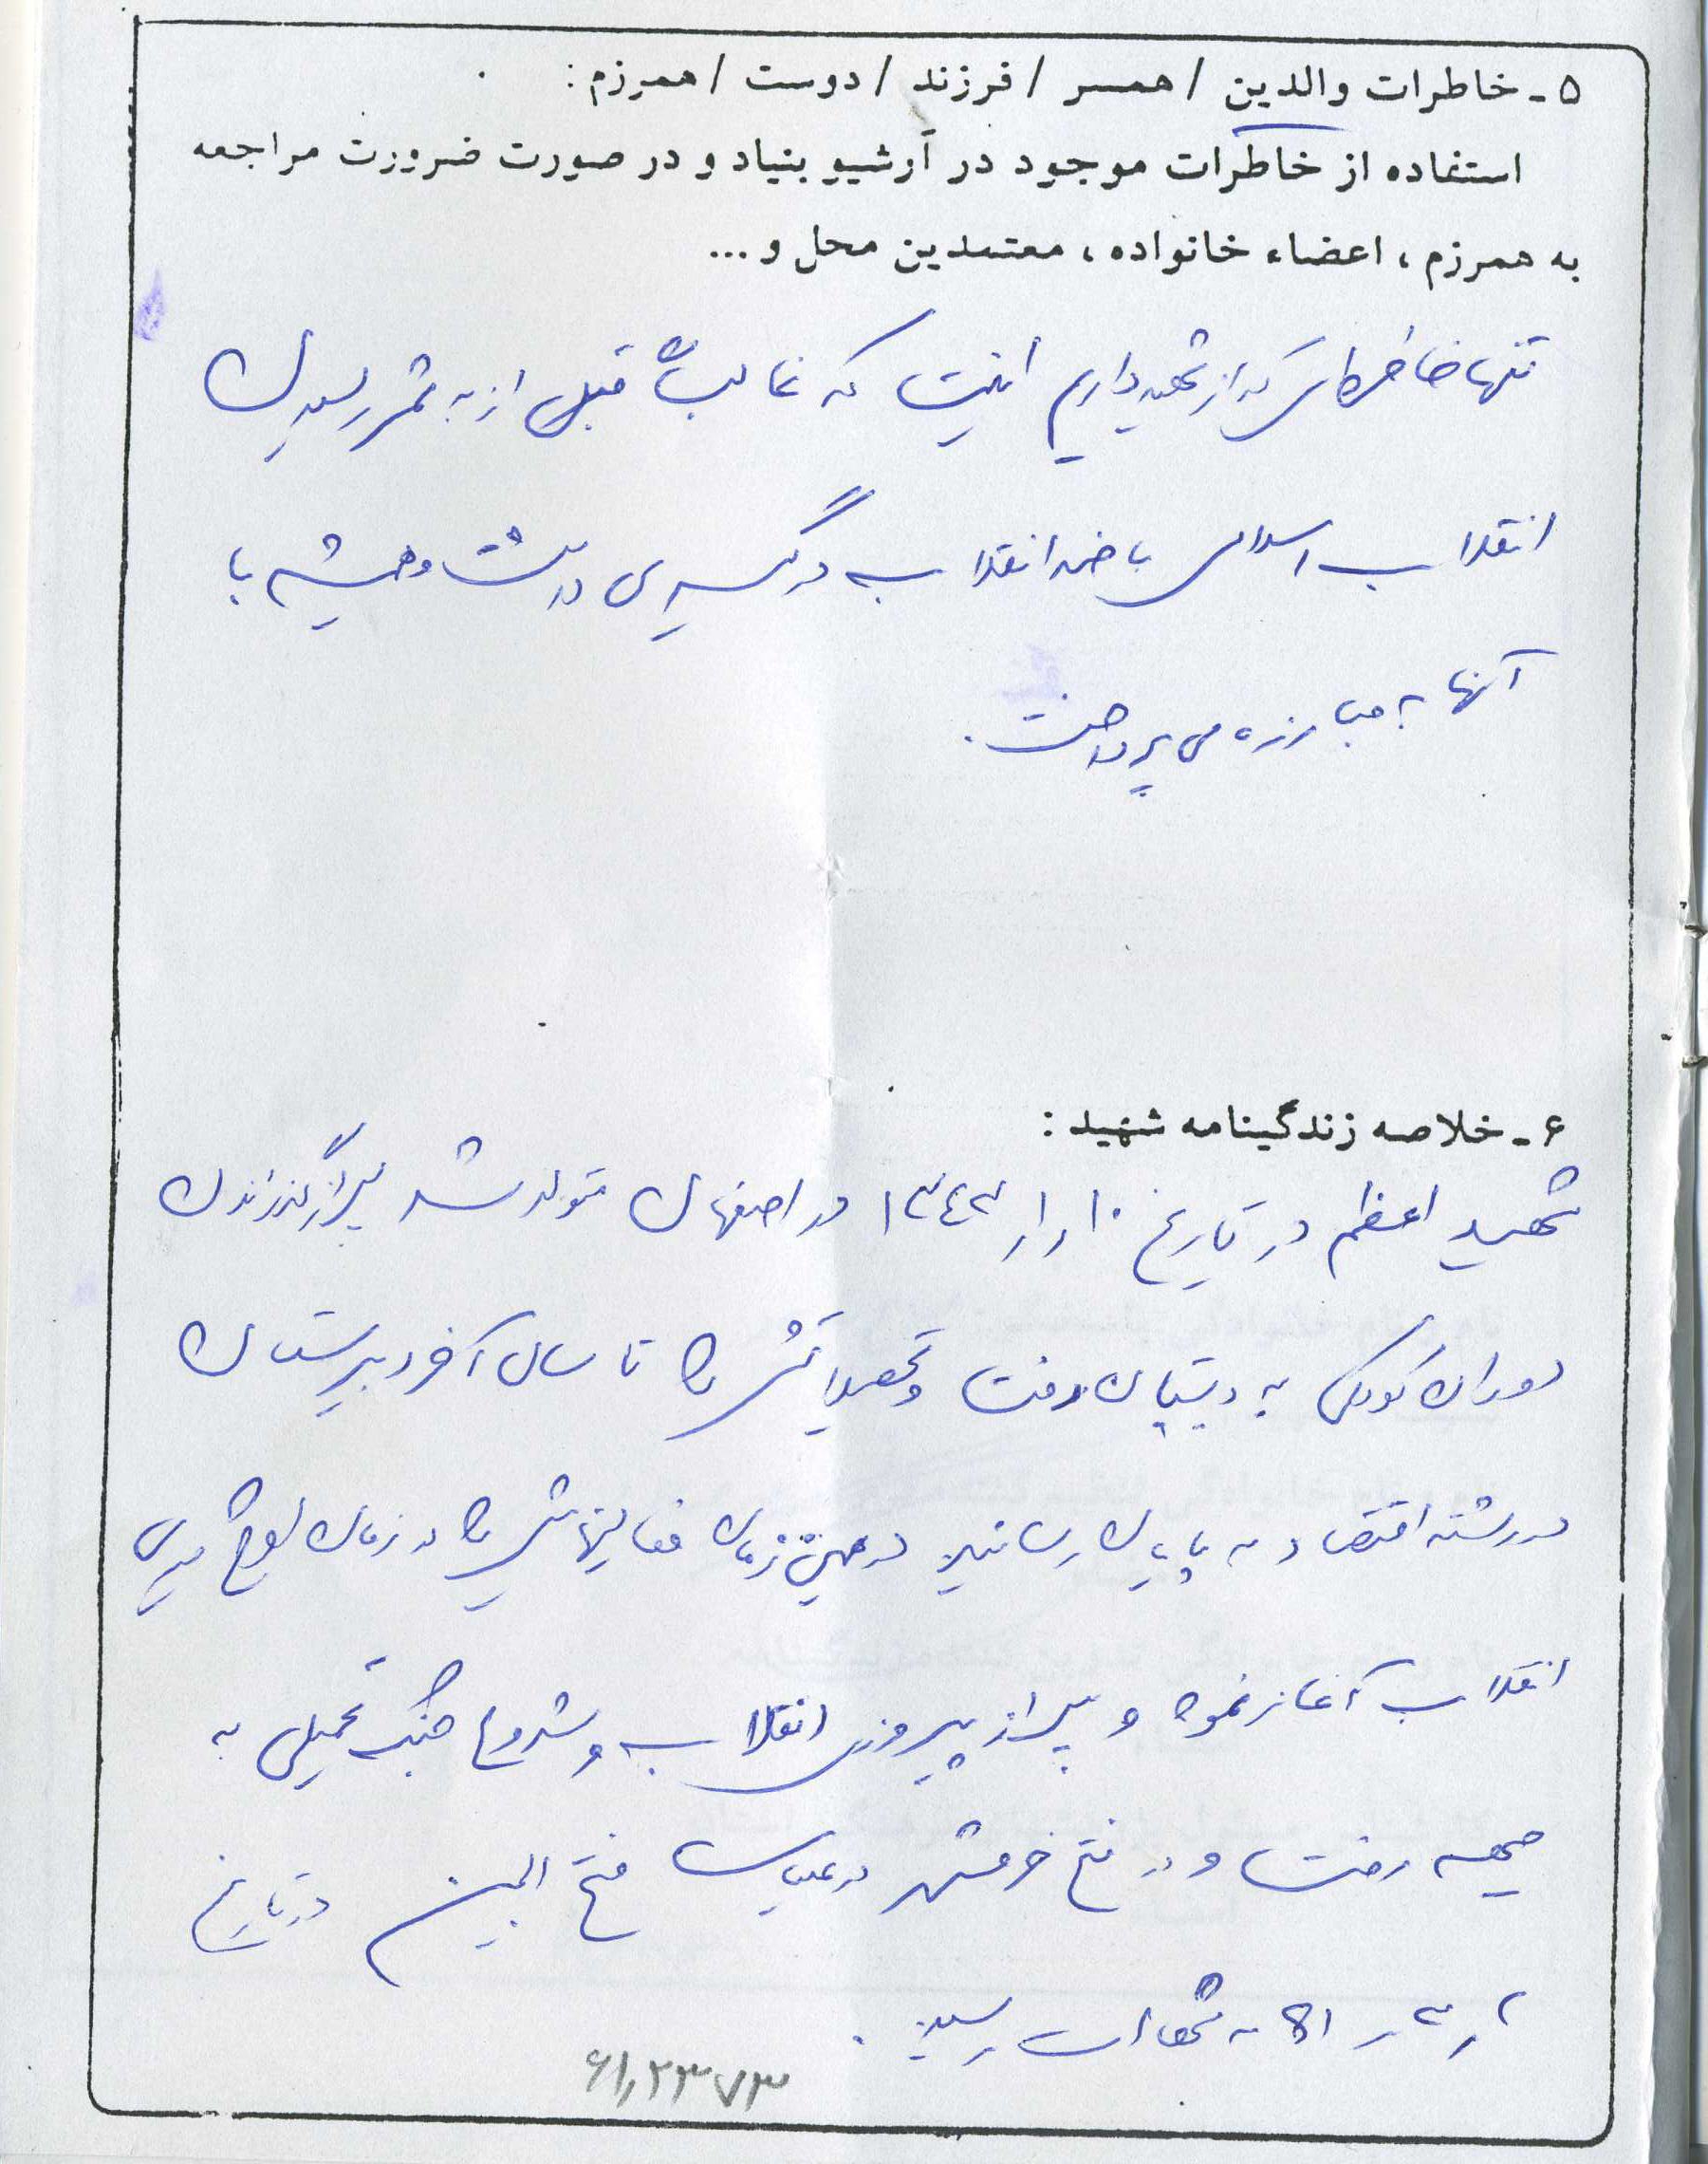 ۵ـ خاطرات والدین / همسر / فرزند / دوست / همرزم :
استفاده از خاطرات موجود در آرشیو بنیاد و در صورت ضرورت مراجعه
به همرزم ، اعضاء خانواده ، معتمدین محل و ...
تنها خاطره‌ای که از شهید داریم اینست که غالباً قبل از به ثمر رسیدن
انقلاب اسلامی با ضد انقلاب درگیری داشت و همیشه با
آنها به مبارزه می پرداخت .
۶ـ خلاصه زندگینامه شهید :
شهید اعظم در تاریخ ۱۰ر۱ر۱۳۴۳ در اصفهان متولد شد پس از گذراندن
دوران کودکی به دبستان رفت و تحصیلاتش را تا سال آخر دبیرستان
در رشته اقتصاد به پایان رسانید در همین زمان فعالیتهایش را در زمان اوج گیری
انقلاب آغاز نمود و پس از پیروزی انقلاب و شروع جنگ تحمیلی به
جبهه رفت و در فتح خرمشهر در عملیات فتح المبین در تاریخ
۲ر۳ر۶۱ به شهادت رسید .
۶۱٫۲۳۷۳